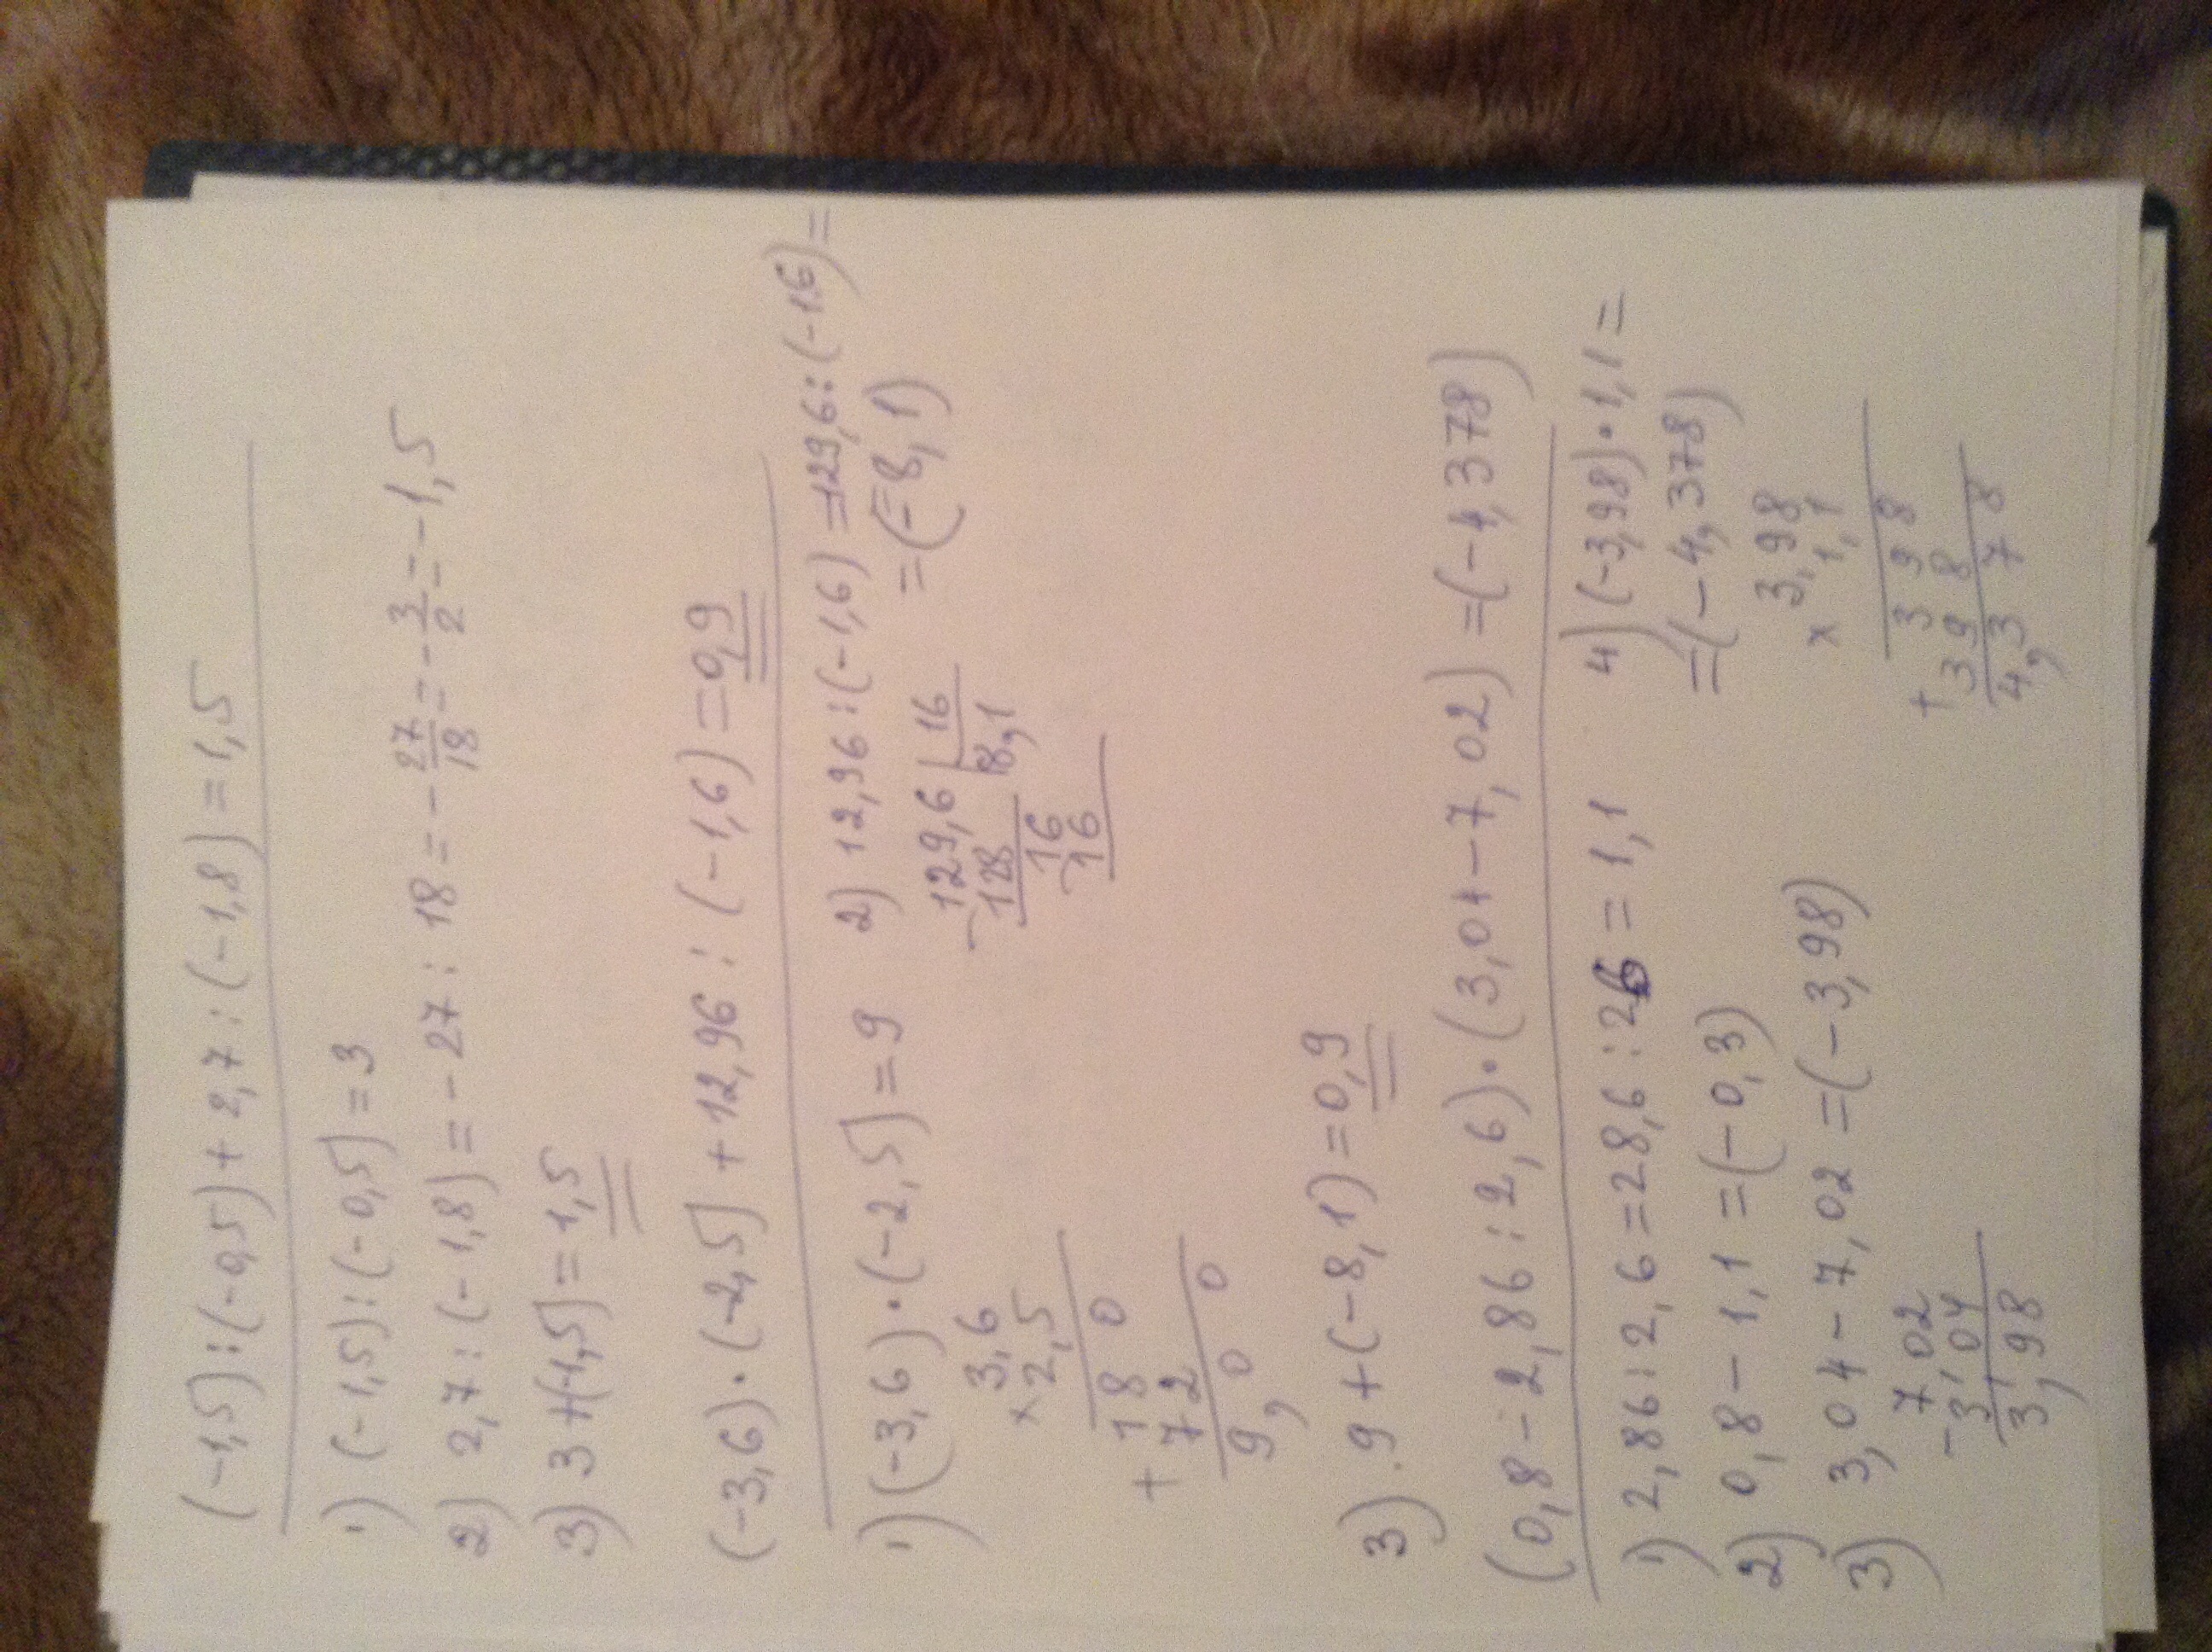 (-1,5):(-0,5)+2,7:(-1,8)=1,5
1) (-1,5):(-0,5)=3
2) 2,7:(-1,8)=-27:18=-27/18=-3/2=-1,5
3) 3+(-1,5)=1,5
(-3,6)·(-2,5)+12,96:(-1,6)=0,9
1) (-3,6)·(-2,5)=9
3,6
×2,5
18 0
+72
9,0 0
2) 12,96:(-1,6)=129,6:(-16)=
=(-8,1)
129,6 | 16
128 8,1
16
16
3) 9+(-8,1)=0,9
(0,8-2,86:2,6)·(3,04-7,02)=(-4,378)
1) 2,86:2,6=28,6:26=1,1
2) 0,8-1,1=(-0,3)
3) 3,04-7,02=(-3,98)
7,02
-3,04
3,98
4) (-3,98)·1,1=
=(-4,378)
3,98
×1,1
398
+398
4,378